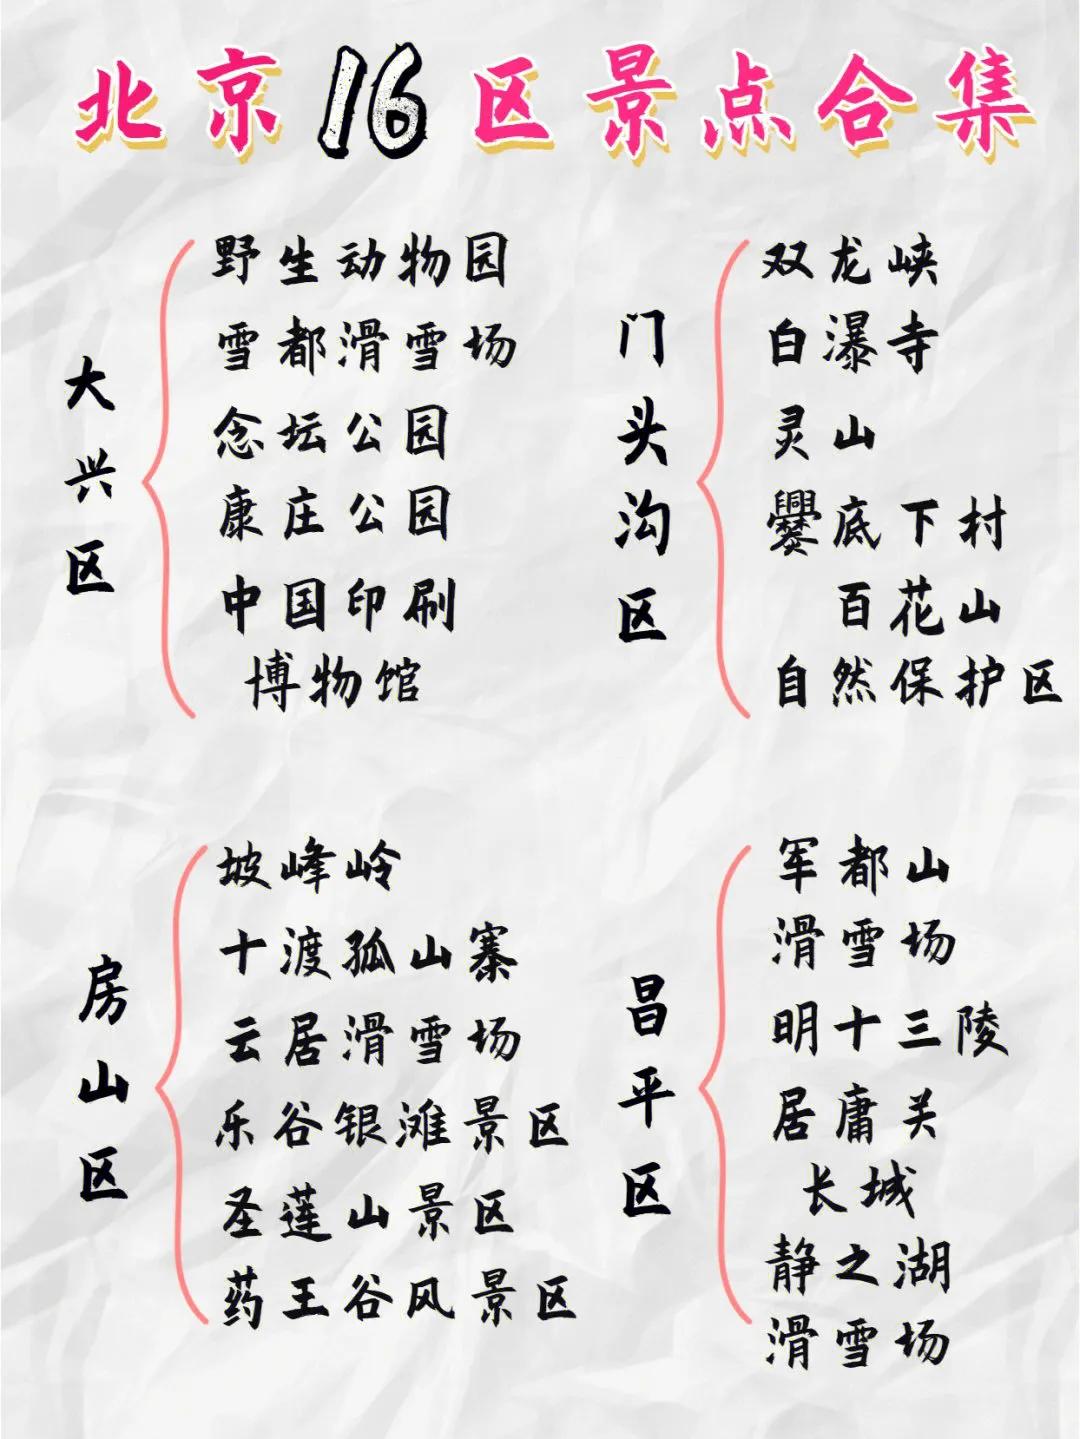 北京16区景点合集
大兴区
野生动物园
雪都滑雪场
念坛公园
康庄公园
中国印刷
博物馆
门头沟区
双龙峡
白瀑寺
灵山
爨底下村
百花山
自然保护区
房山区
坡峰岭
十渡孤山寨
云居滑雪场
乐谷银滩景区
圣莲山景区
药王谷风景区
昌平区
军都山
滑雪场
明十三陵
居庸关
长城
静之湖
滑雪场